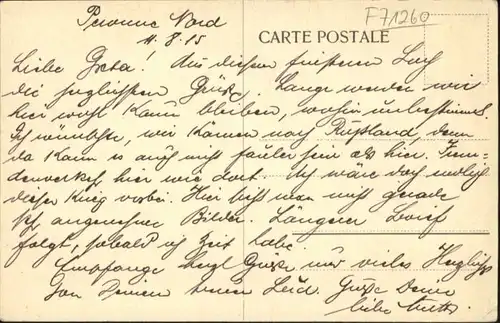 F71260
Peronne Nord
11.8.15
CARTE POSTALE
Liebe Greta! Aus diesem finsteren Loch
die herzlichsten Grüße. Lange werden wir
hier wohl kaum bleiben, wohin unbestimmt.
Ich wünschte, wir kämen nach Rußland, denn
da kann es auch nicht fauler sein als hier.
hier wie dort. Ich wäre doch endlich
dieser Krieg vorbei. Hier sieht man nicht gerade
sehr angenehme Bilder. Längerer Brief
folgt, sobald ich Zeit habe.
Empfange herzl. Grüße und vieles Herzliche
von Deinem Grüße Deine
liebe Mutter.